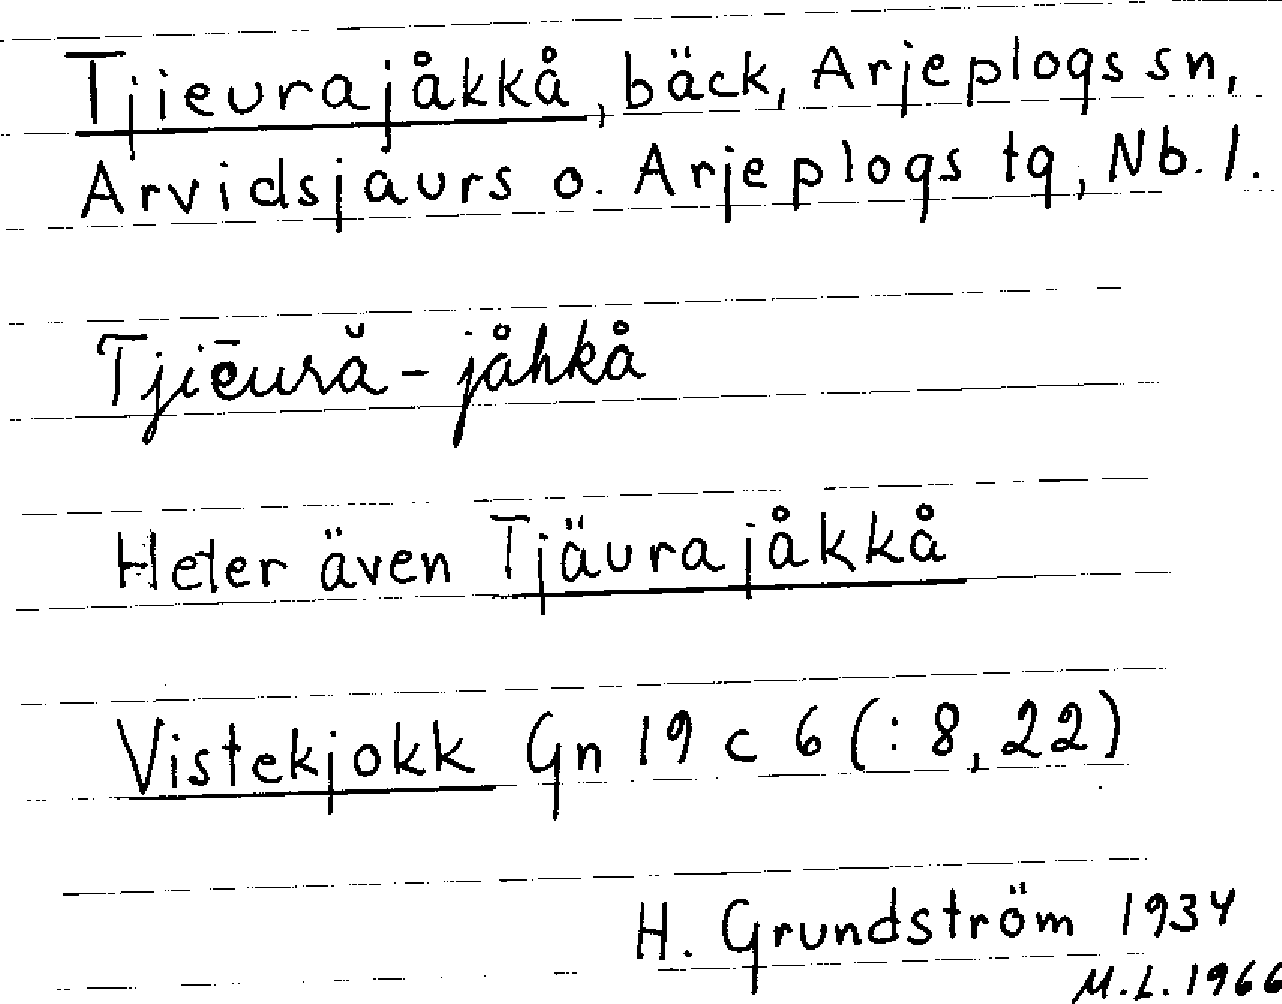 Tjieurajåkkå, bäck, Arjeplogs sn,
Arvidsjaurs o. Arjeplogs tg, Nb. l.
Tjiēură - jåhkå
Heter även Tjäurajåkkå
Vistekjokk Gn 19 c 6 (: 8, 22)
H. Grundström 1934
M.L. 1966